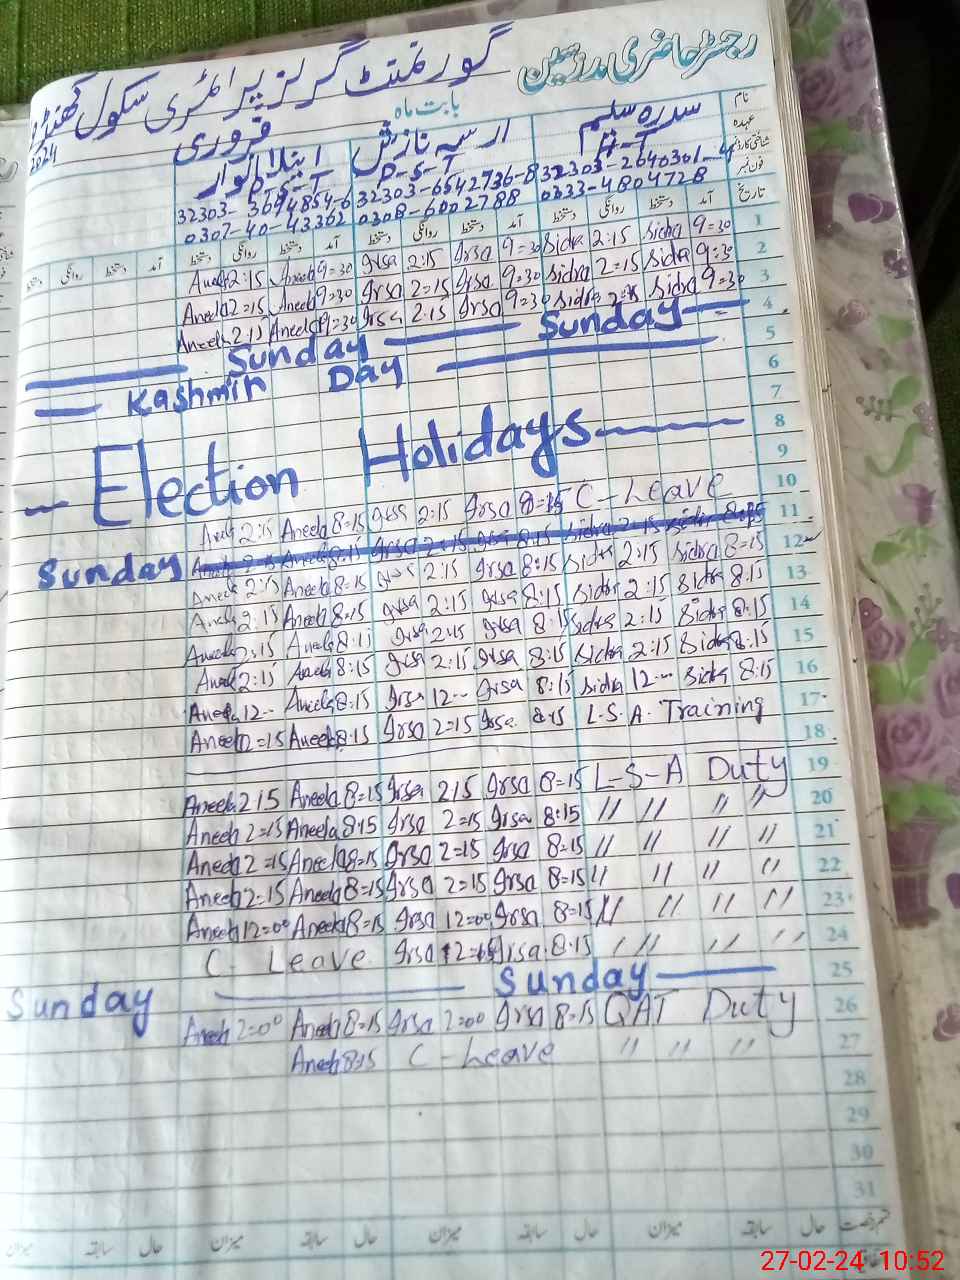 رجسٹر حاضری مدرسین
گورنمنٹ گرلز پرائمری سکول
بابت ماہ فروری 2024
نام سدرہ سلیم ارسہ نازش انیلا انوار
عہدہ A-T D-S-T D-S-T
شناختی کارڈ نمبر 32303-2640301-4 32303-6542736-8 32303-3694854-6
فون نمبر 0333-4804728 0308-6002788 0307-40-43362
تاریخ آمد دستخط روانگی دستخط آمد دستخط روانگی دستخط آمد دستخط روانگی دستخط آمد دستخط روانگی دستخط
Aneela 2:15 Aneela 9=30 Irsa 2:15 Irsa 9=30 Sidra 2:15 Sidra 9=30 1
Aneela 2=15 Aneela 9=30 Irsa 2=15 Irsa 9=30 Sidra 2=15 Sidra 9=30 2
Aneela 2:15 Aneela 9=30 Irsa 2:15 Irsa 9=30 Sidra 2:15 Sidra 9=30 3
Sunday Sunday 4
Kashmir Day 5
6
7
Election Holidays 8
9
Aneela 2:15 Aneela 8=15 Irsa 2:15 Irsa 8=15 C-Leave 10
Sunday 11
Aneela 2:15 Aneela 8:15 Irsa 2:15 Irsa 8:15 Sidra 2:15 Sidra 8=15 12
Aneela 2:15 Aneela 8:15 Irsa 2:15 Irsa 8:15 Sidra 2:15 Sidra 8:15 13
Aneela 2:15 Aneela 8:15 Irsa 2:15 Irsa 8:15 Sidra 2:15 Sidra 8:15 14
Aneela 2:15 Aneela 8:15 Irsa 2:15 Irsa 8:15 Sidra 2:15 Sidra 8:15 15
Aneela 12-- Aneela 8:15 Irsa 12-- Irsa 8:15 Sidra 12-- Sidra 8:15 16
Aneela 2=15 Aneela 8:15 Irsa 2=15 Irsa 8:15 L.S.A. Training 17
18
Aneela 2:15 Aneela 8=15 Irsa 2:15 Irsa 8=15 L-S-A Duty 19
Aneela 2=15 Aneela 8:15 Irsa 2=15 Irsa 8:15 // // // // 20
Aneela 2=15 Aneela 8=15 Irsa 2=15 Irsa 8=15 // // // // 21
Aneela 2=15 Aneela 8=15 Irsa 2=15 Irsa 8=15 // // // // 22
Aneela 12=00 Aneela 8=15 Irsa 12=00 Irsa 8=15 // // // // 23
C- Leave Irsa Irsa 8:15 // // // // 24
Sunday Sunday 25
Aneela 2=00 Aneela 8=15 Irsa 2=00 Irsa 8=15 QAT Duty 26
Aneela 8:15 C-Leave // // // // 27
28
29
30
31
قسم رخصت حال سابقہ میزان حال سابقہ میزان حال سابقہ میزان حال سابقہ میزان
27-02-24 10:52